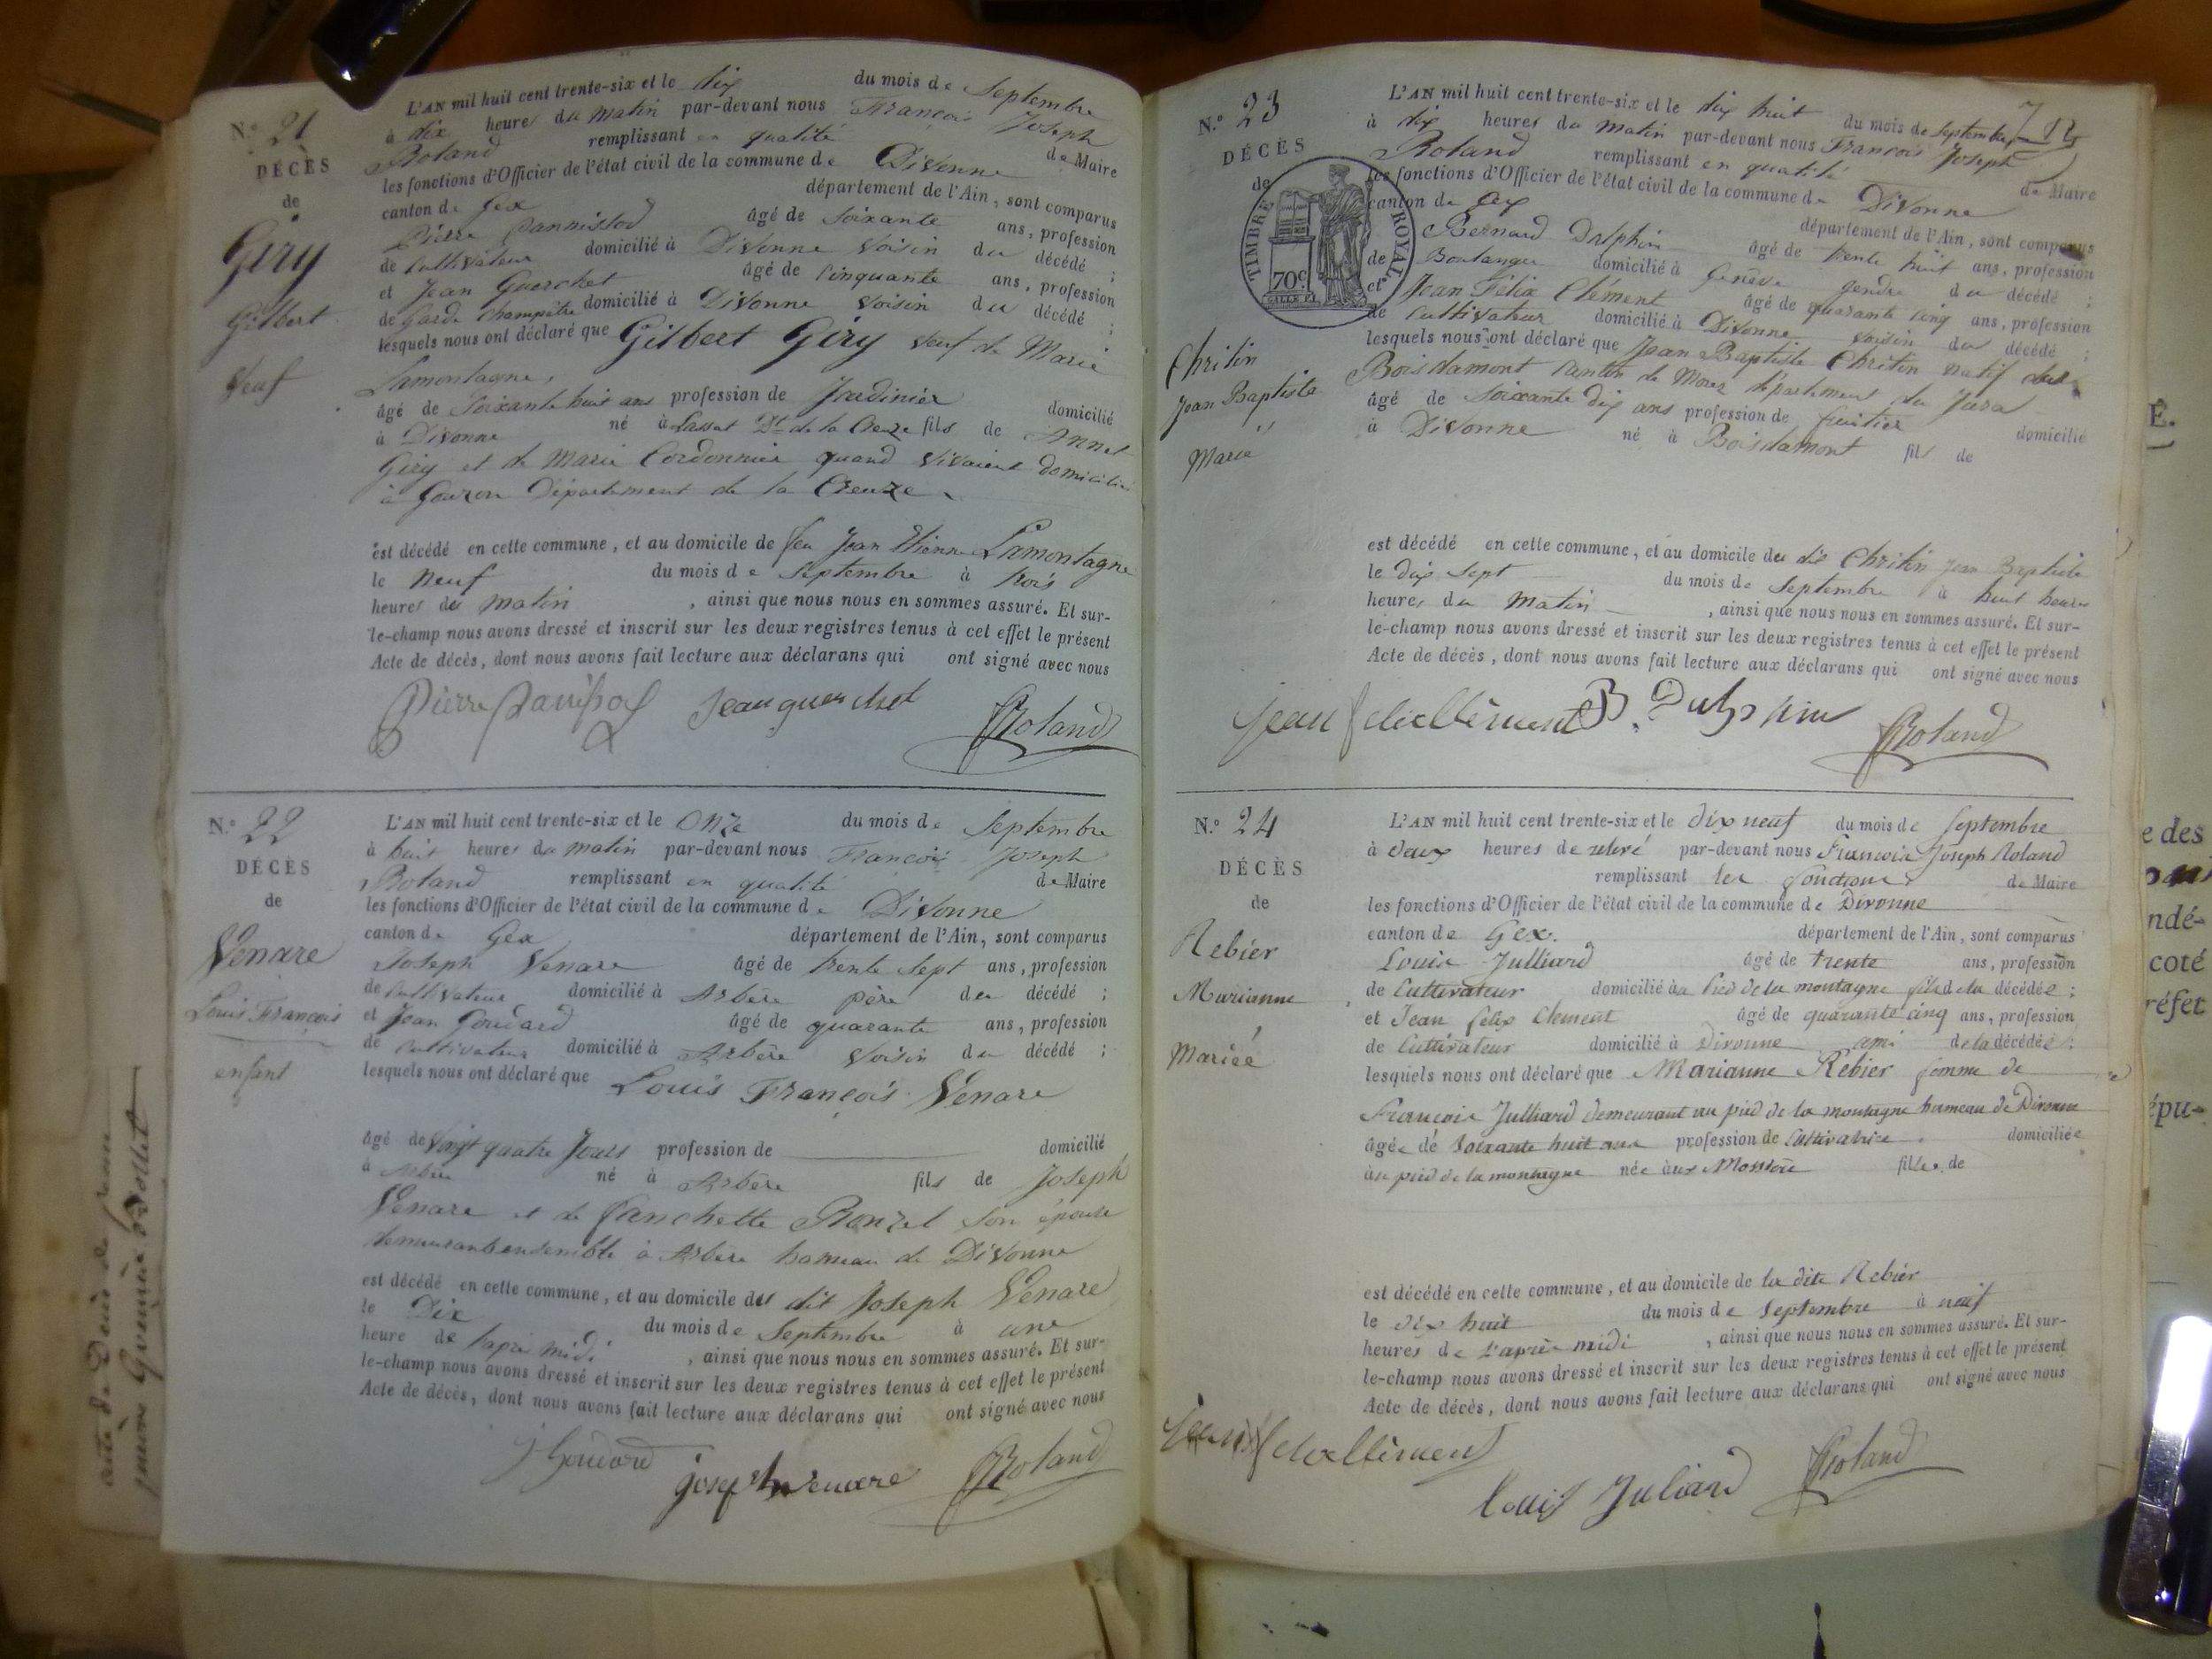 N.° 21
DÉCÈS
de
Giry
Gilbert
Veuf
L'AN mil huit cent trente-six et le dix du mois de Septembre
à dix heures du matin par-devant nous François Joseph
Roland remplissant en qualité de Maire
les fonctions d'Officier de l'état civil de la commune de Divonne
canton de Gex département de l'Ain, sont comparus
Pierre Pannissod âgé de Soixante ans, profession
de Cultivateur domicilié à Divonne voisin du décédé ;
et Jean Guerchet âgé de Cinquante ans, profession
de Garde Champêtre domicilié à Divonne voisin du décédé ;
lesquels nous ont déclaré que Gilbert Giry veuf de Marie
Lamontagne,
âgé de Soixante huit ans profession de Jardinier domicilié
à Divonne né à Lassat Dt de la Creuze fils de Annet
Giry et de Marie Cordonnier quand vivaient domiciliés
à Gouzon Département de la Creuze.
est décédé en cette commune, et au domicile de feu Jean Etienne Lamontagne
le neuf du mois de Septembre à trois
heures du matin, ainsi que nous nous en sommes assuré. Et sur-
le-champ nous avons dressé et inscrit sur les deux registres tenus à cet effet le présent
Acte de décès, dont nous avons fait lecture aux déclarans qui ont signé avec nous
Jean guerchet Roland
N.° 22
DÉCÈS
de
Venare
Louis François
enfant
L'AN mil huit cent trente-six et le Onze du mois de Septembre
à huit heures du matin par-devant nous François Joseph
Roland remplissant en qualité de Maire
les fonctions d'Officier de l'état civil de la commune de Divonne
canton de Gex département de l'Ain, sont comparus
Joseph Venare âgé de trente Sept ans, profession
de Cultivateur domicilié à Arbère père du décédé ;
et Jean Goudard âgé de quarante ans, profession
de Cultivateur domicilié à Arbère voisin du décédé ;
lesquels nous ont déclaré que Louis François Venare
âgé de Vingt quatre Jours profession de domicilié
à Arbère né à Arbère fils de Joseph
Venare et de Fanchette Ronzel son épouse
demeurant ensemble à Arbère hameau de Divonne
est décédé en cette commune, et au domicile du dit Joseph Venare
le Dix du mois de Septembre à une
heure de l'apré midi, ainsi que nous nous en sommes assuré. Et sur-
le-champ nous avons dressé et inscrit sur les deux registres tenus à cet effet le présent
Acte de décès, dont nous avons fait lecture aux déclarans qui ont signé avec nous
J Goudard joseph venare Roland
N.° 23
DÉCÈS
de
TIMBRE ROYAL
70c.
Chritin
Jean Baptiste
Marié
L'AN mil huit cent trente-six et le dix huit du mois de Septembre
à dix heures du matin par-devant nous François Joseph
Roland remplissant en qualité de Maire
les fonctions d'Officier de l'état civil de la commune de Divonne
canton de Gex département de l'Ain, sont comparus
Bernard Dalphin âgé de trente huit ans, profession
de Boulanger domicilié à Genève gendre du décédé ;
et Jean Félix Clément âgé de quarante cinq ans, profession
de Cultivateur domicilié à Divonne voisin du décédé ;
lesquels nous ont déclaré que Jean Baptiste Chritin natif de
Boisdamont Canton de Morez département du Jura
âgé de Soixante dix ans profession de fruitier domicilié
à Divonne né à Boisdamont fils de
est décédé en cette commune, et au domicile du dit Chritin Jean Baptiste
le dix sept du mois de Septembre à huit heures
heures du Matin, ainsi que nous nous en sommes assuré. Et sur-
le-champ nous avons dressé et inscrit sur les deux registres tenus à cet effet le présent
Acte de décès, dont nous avons fait lecture aux déclarans qui ont signé avec nous
Roland
N.° 24
DÉCÈS
de
Rebier
Marianne
Mariée
L'AN mil huit cent trente-six et le dix neuf du mois de Septembre
à deux heures de relevé par-devant nous François Joseph Roland
remplissant les fonctions de Maire
les fonctions d'Officier de l'état civil de la commune de Divonne
canton de Gex. département de l'Ain, sont comparus
Louis Julliard âgé de trente ans, profession
de Cultivateur domicilié au Pied de la montagne fils de la décédée ;
et Jean felix Clement âgé de quarante cinq ans, profession
de Cultivateur domicilié à Divonne ami de la décédée ;
lesquels nous ont déclaré que Marianne Rebier femme de
François Julliard demeurant au pied de la montagne hameau de Divonne
âgée de soixante huit ans profession de Cultivatrice domiciliée
au pied de la montagne née aux fille de
est décédé en cette commune, et au domicile de la dite Rebier
le dix huit du mois de Septembre à neuf
heures de l'après midi, ainsi que nous nous en sommes assuré. Et sur-
le-champ nous avons dressé et inscrit sur les deux registres tenus à cet effet le présent
Acte de décès, dont nous avons fait lecture aux déclarans qui ont signé avec nous
Louis Juliard Roland
É.
e des
ndé-
coté
réfet
épu-